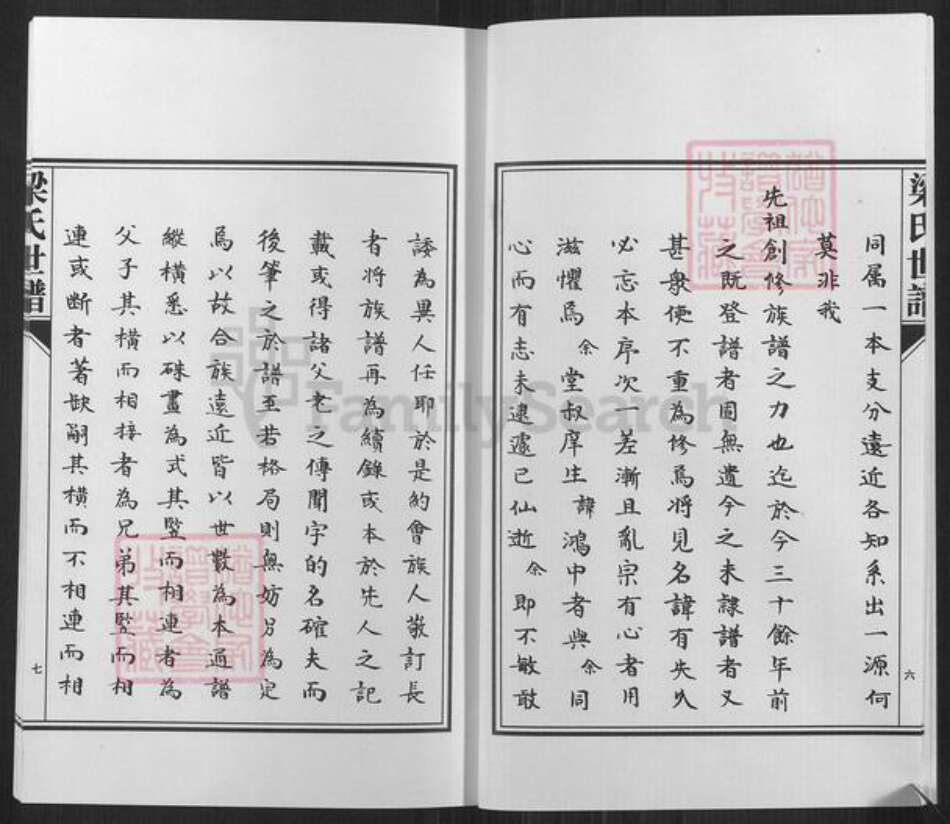 梁氏世譜
同属一本支分遠近各知系出一源何
莫非我
先祖創修族譜之力也迄於今三十餘年前
之既登譜者固無遺今之未隸譜者又
甚衆使不重為修焉將見名諱有失久
必忘本序次一差漸且亂宗有心者用
滋懼焉余堂叔庠生諱鴻中者與余同
心而有志未逮遽已仙逝余即不敏敢
六
諉為異人任耶於是約會族人敬訂長
者將族譜再為續錄或本於先人之記
載或得諸父老之傳聞字的名確夫而
後筆之於譜至若格局則無妨另為定
焉以故合族遠近皆以世數為本通譜
縱橫悉以硃畫為式其豎而相連者為
父子其橫而相接者為兄弟其豎而相
連或斷者著缺嗣其橫而不相連而相
梁氏世譜
七
FamilySearch